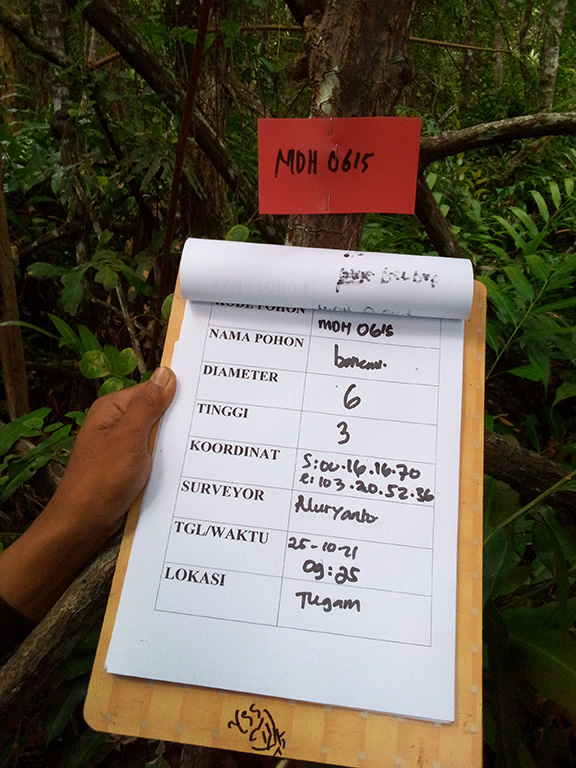 MDH 0615
KODE POHON MDH 0615
NAMA POHON
DIAMETER 6
TINGGI 3
KOORDINAT S:00.16.16.70
E:103.20.52.36
SURVEYOR Nuryanto
TGL/WAKTU 25-10-21
09:25
LOKASI Tugam